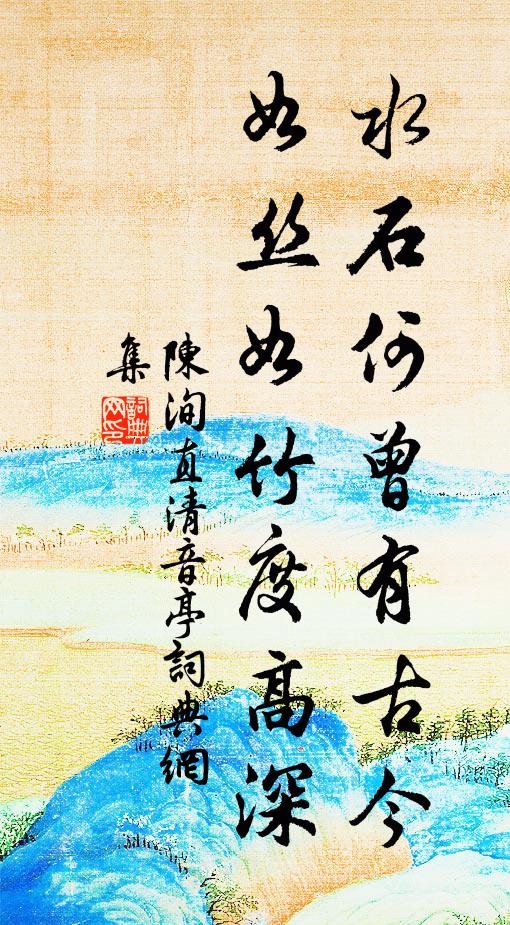 水石何曾有古今
如丝如竹度高深
陳洵直清音亭詞典網
集
詞典网印